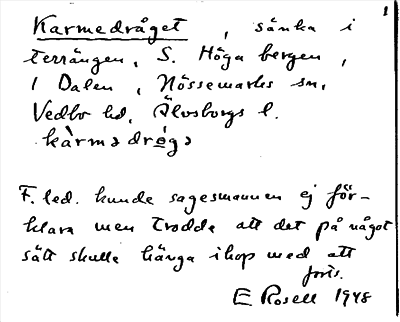 1
Karmedråget, sänka i
terrängen, S. Höga bergen,
1 Dalen, Nössemarks sn,
Vedbo hd, Älvsborgs l.
kàrmədrǫ́gə
F. led. kunde sagesmannen ej för-
klara men trodde att det på något
sätt skulle hänga ihop med att
forts.
E Rosell 1948